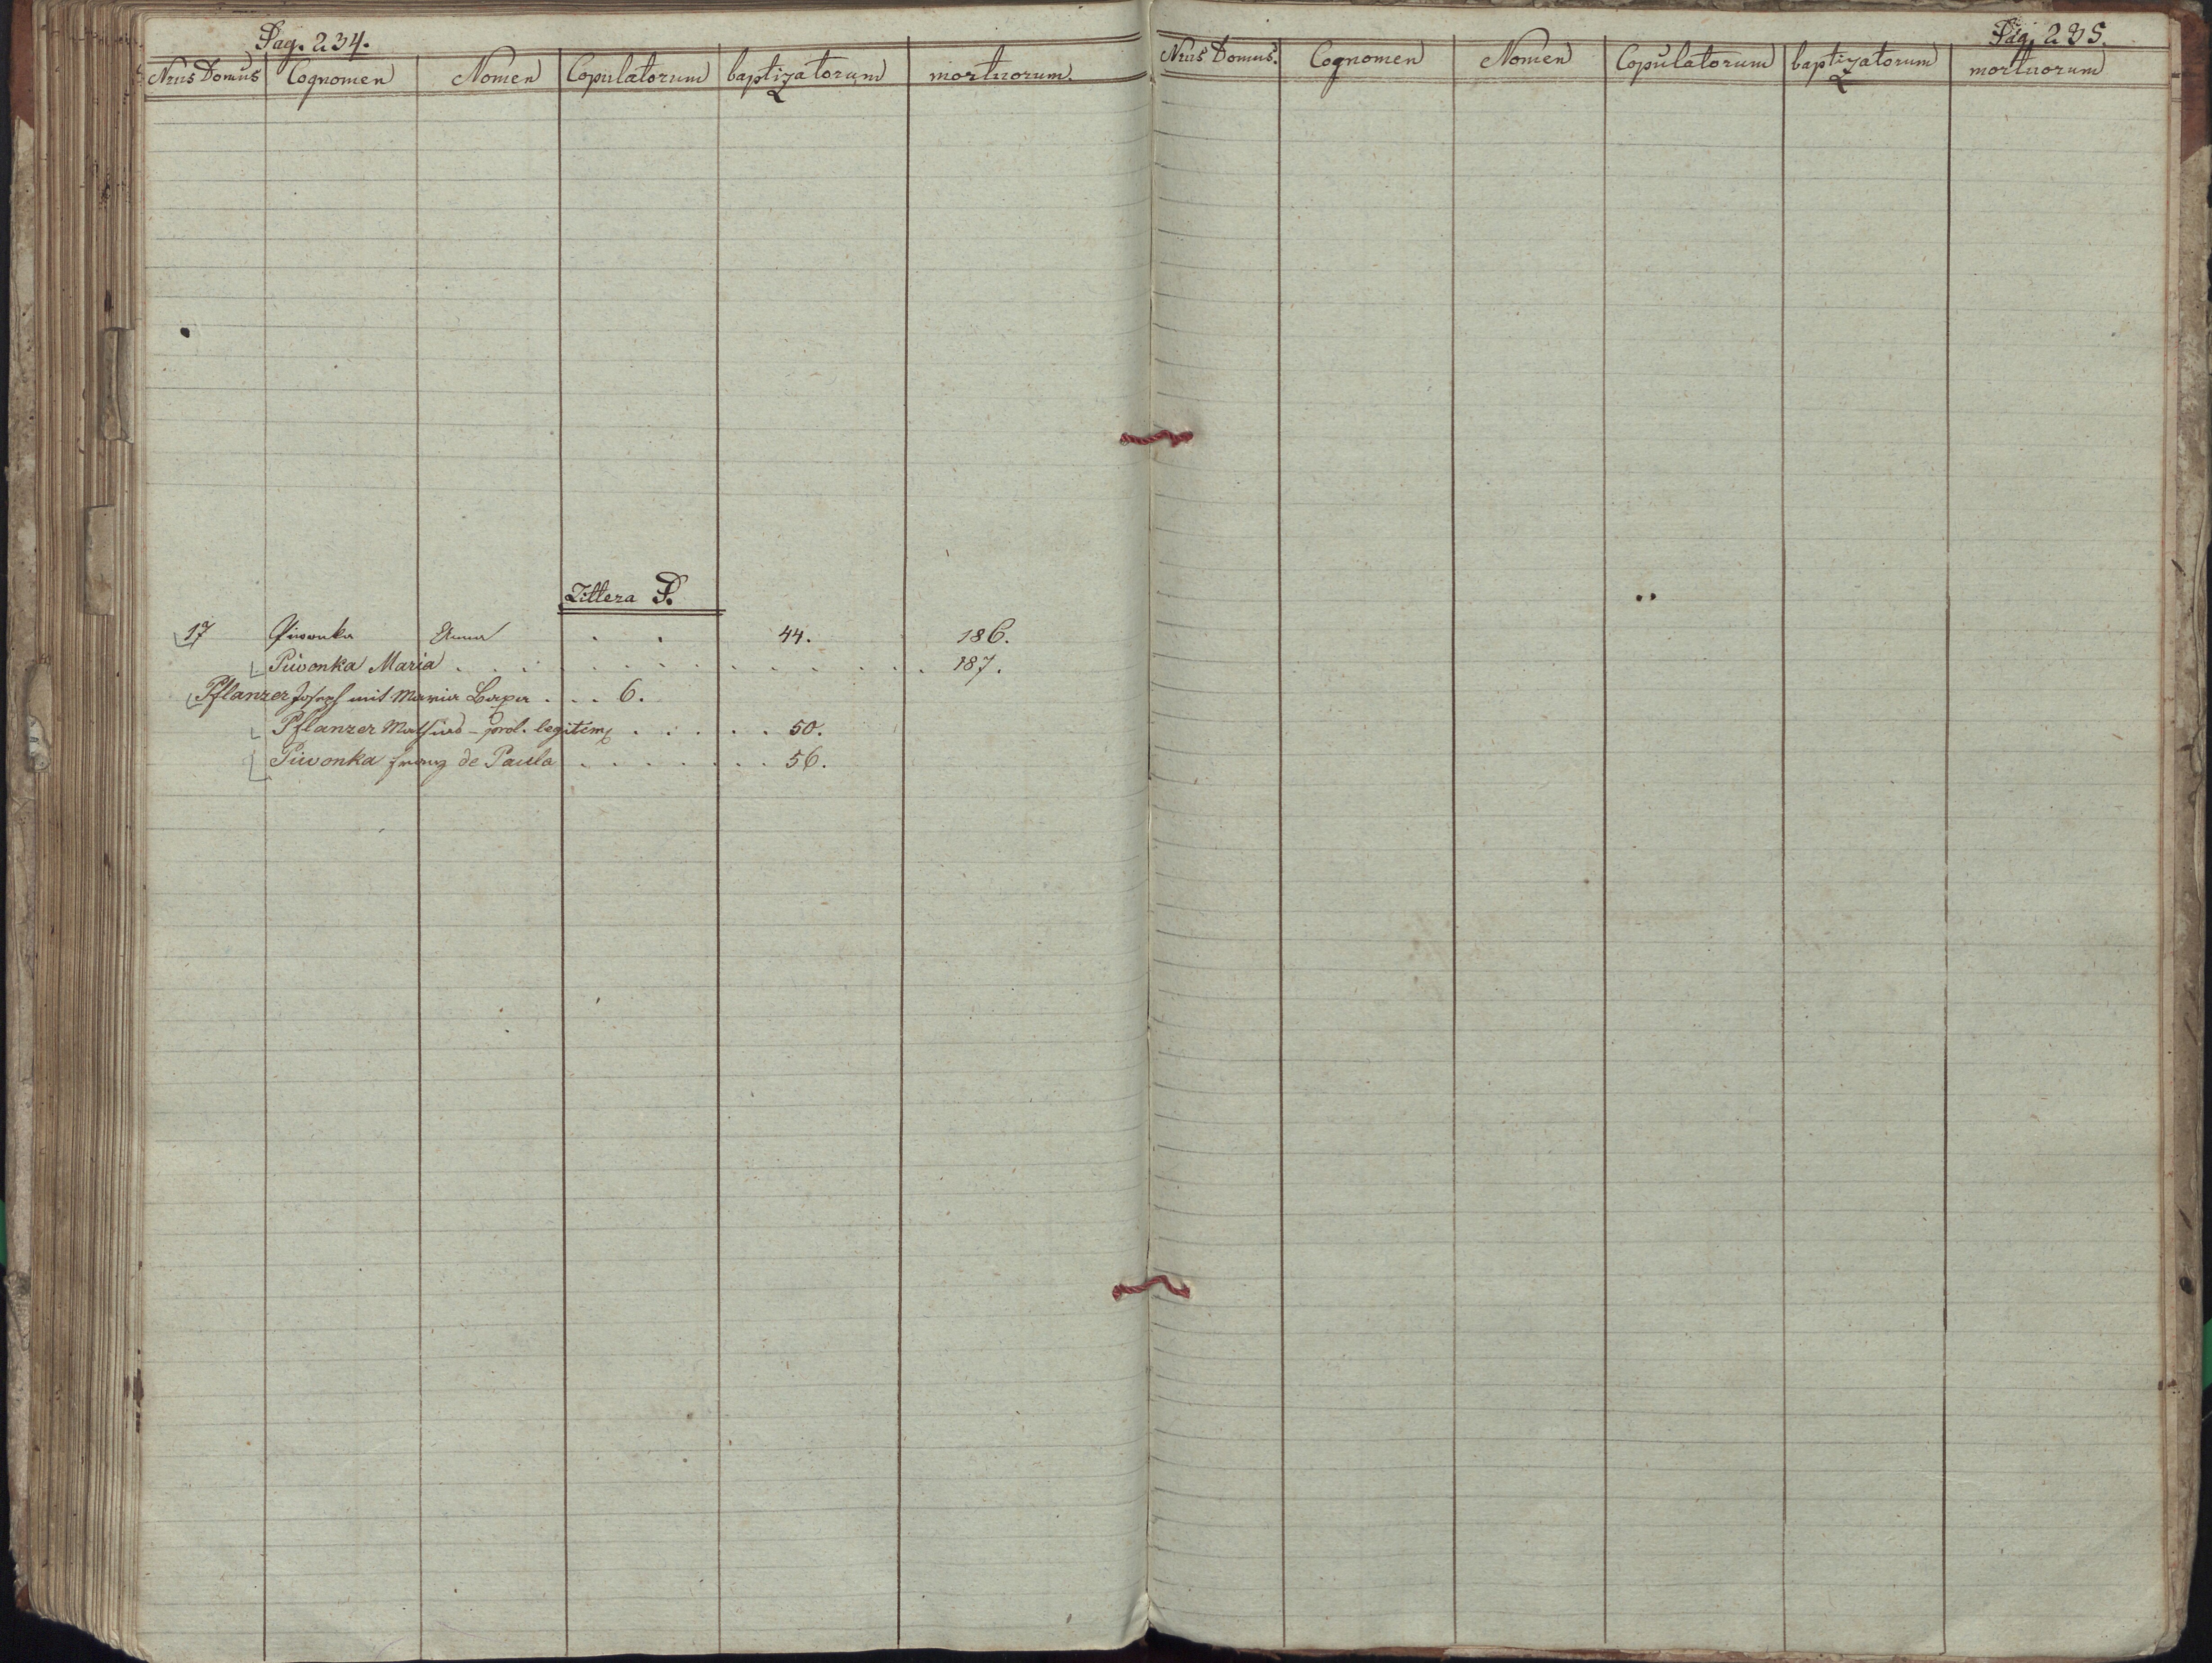 Pag. 234.
Nrus Domus Cognomen Nomen Copulatorum baptizatorum mortuorum.
Littera P.
17 Piwonka Anna . . 44. 186.
Piwonka Maria . . . . . . . . . . . . . . 187.
Pflanzer Joseph mit Maria . . . 6.
Pflanzer Mathias – prol. legitim . . . . . 50.
Piwonka Franz de Paula . . . . . . . 56.
Pag. 235.
Nrus Domus. Cognomen Nomen Copulatorum baptizatorum mortuorum